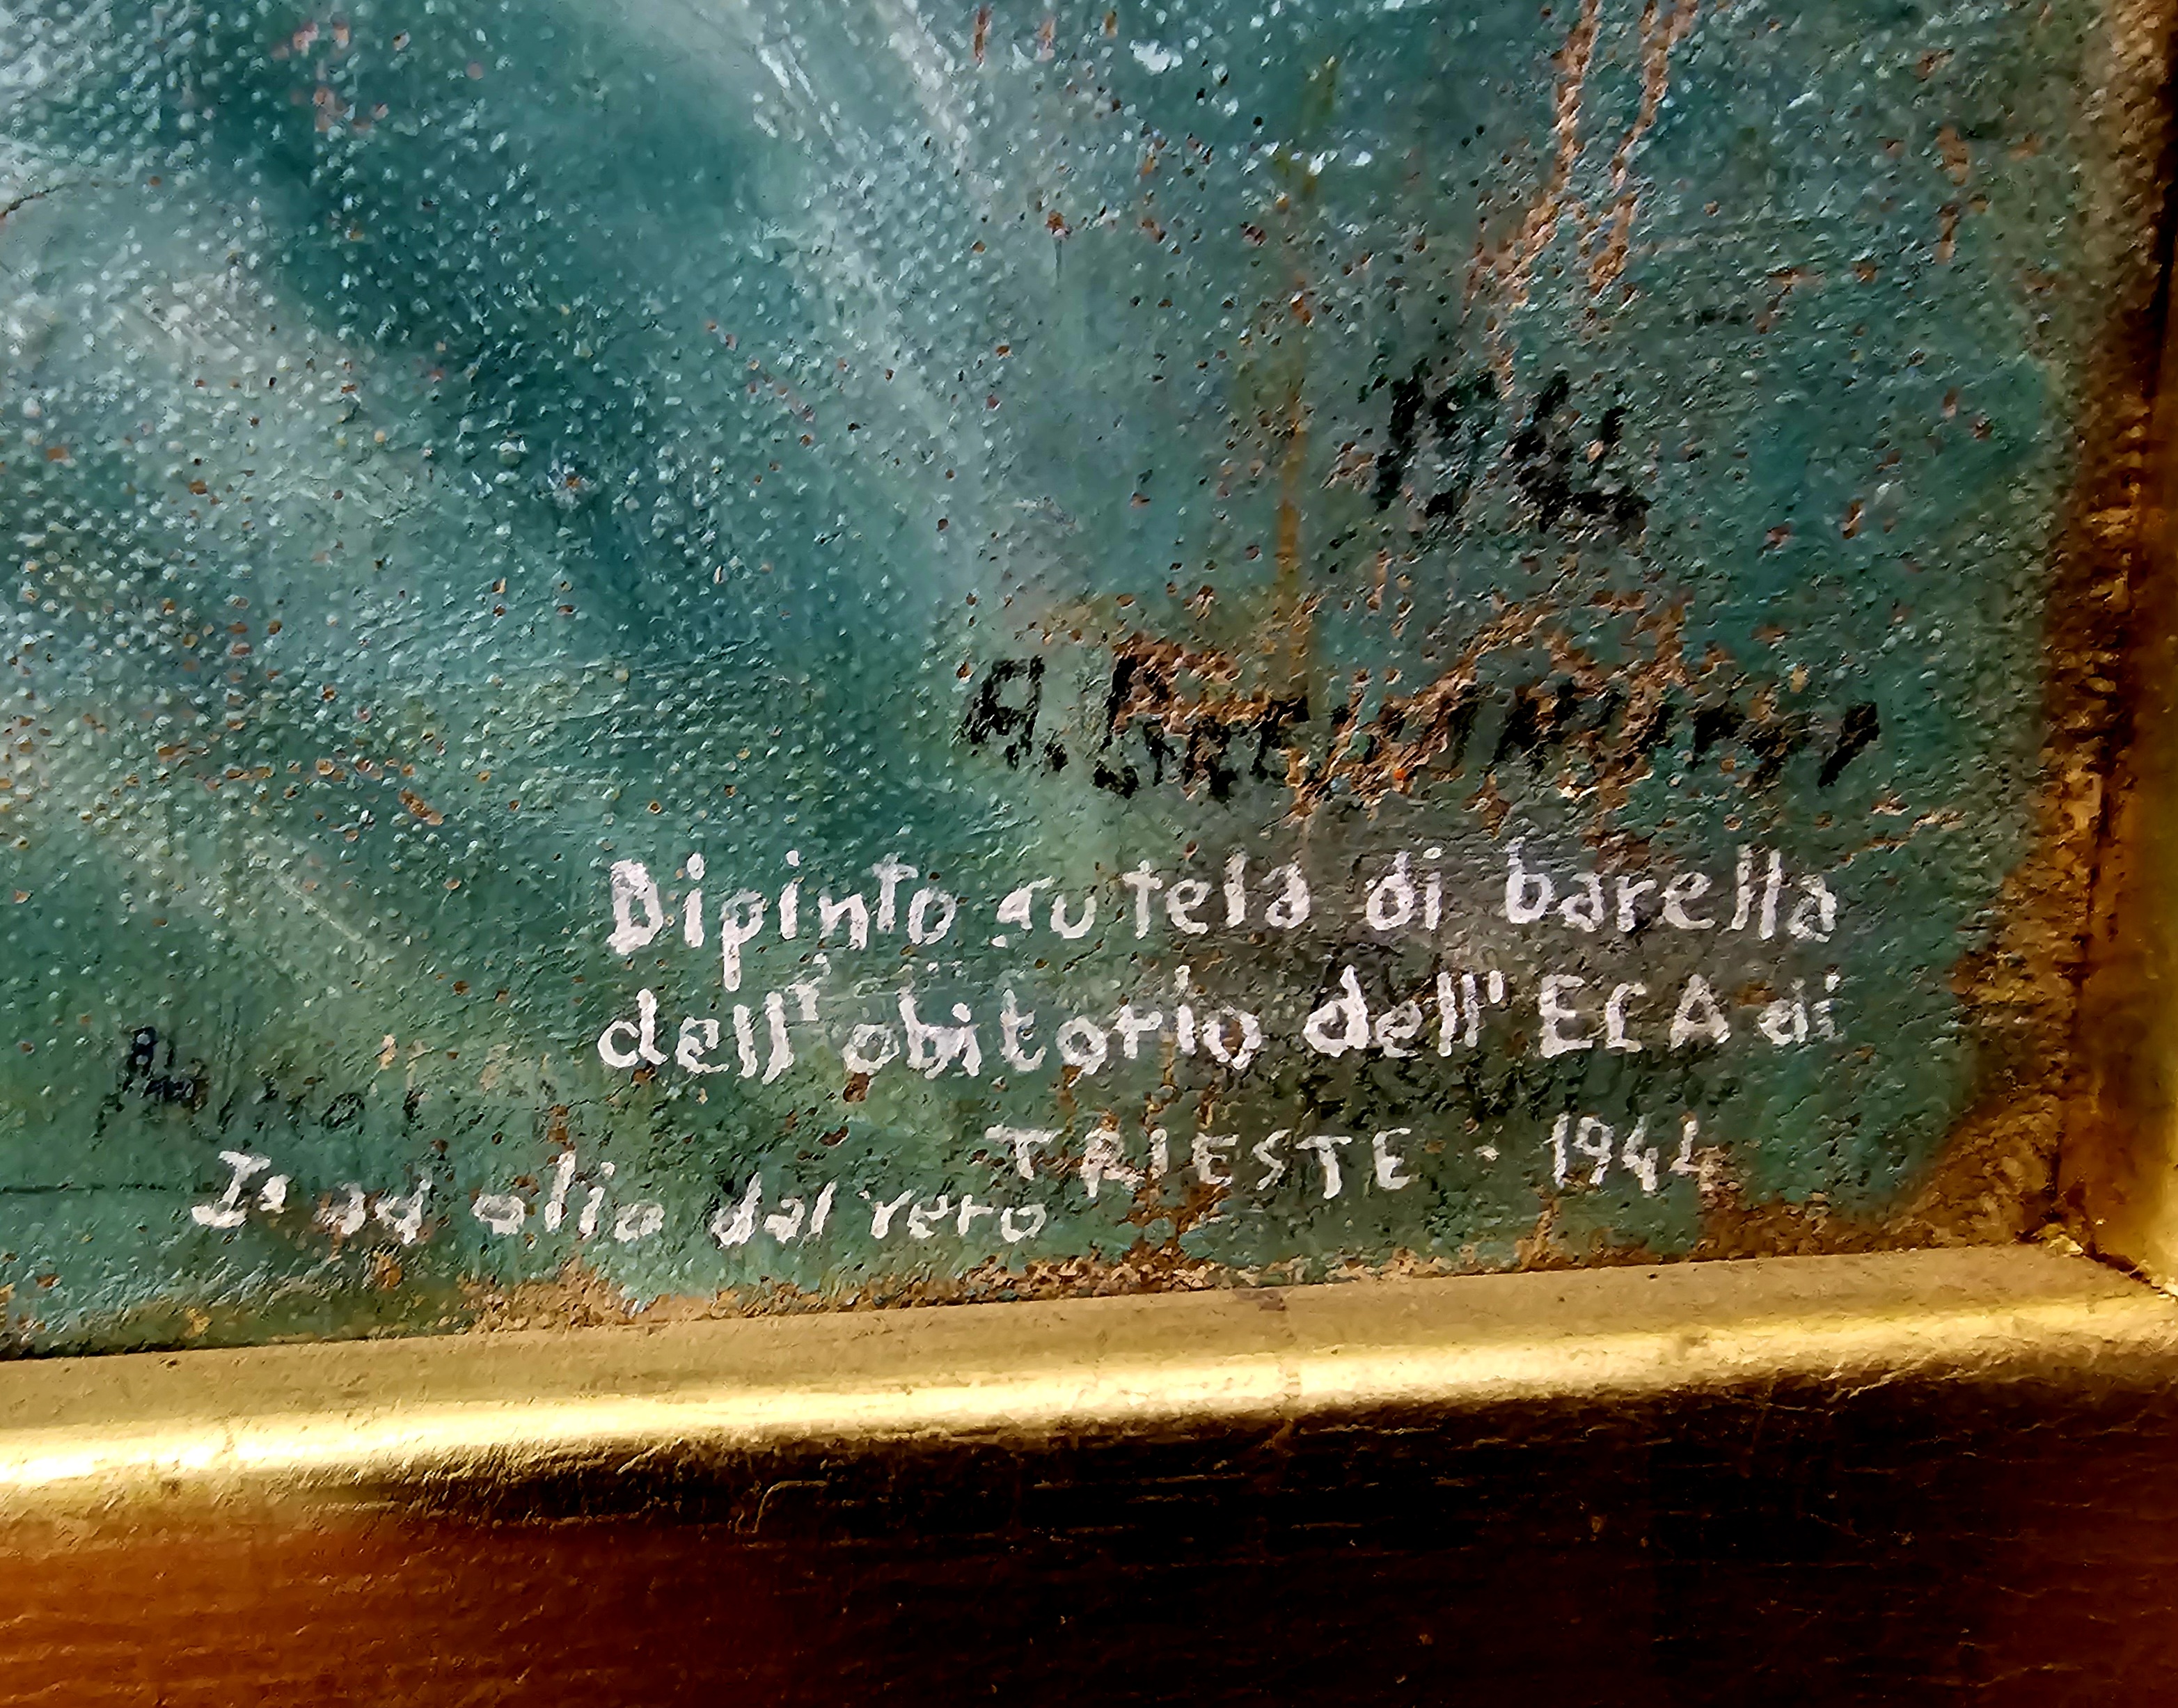 A.
Dipinto su tela di barella
dell'obitorio dell'ECA di
TRIESTE - 1944
Iº ad olio dal vero